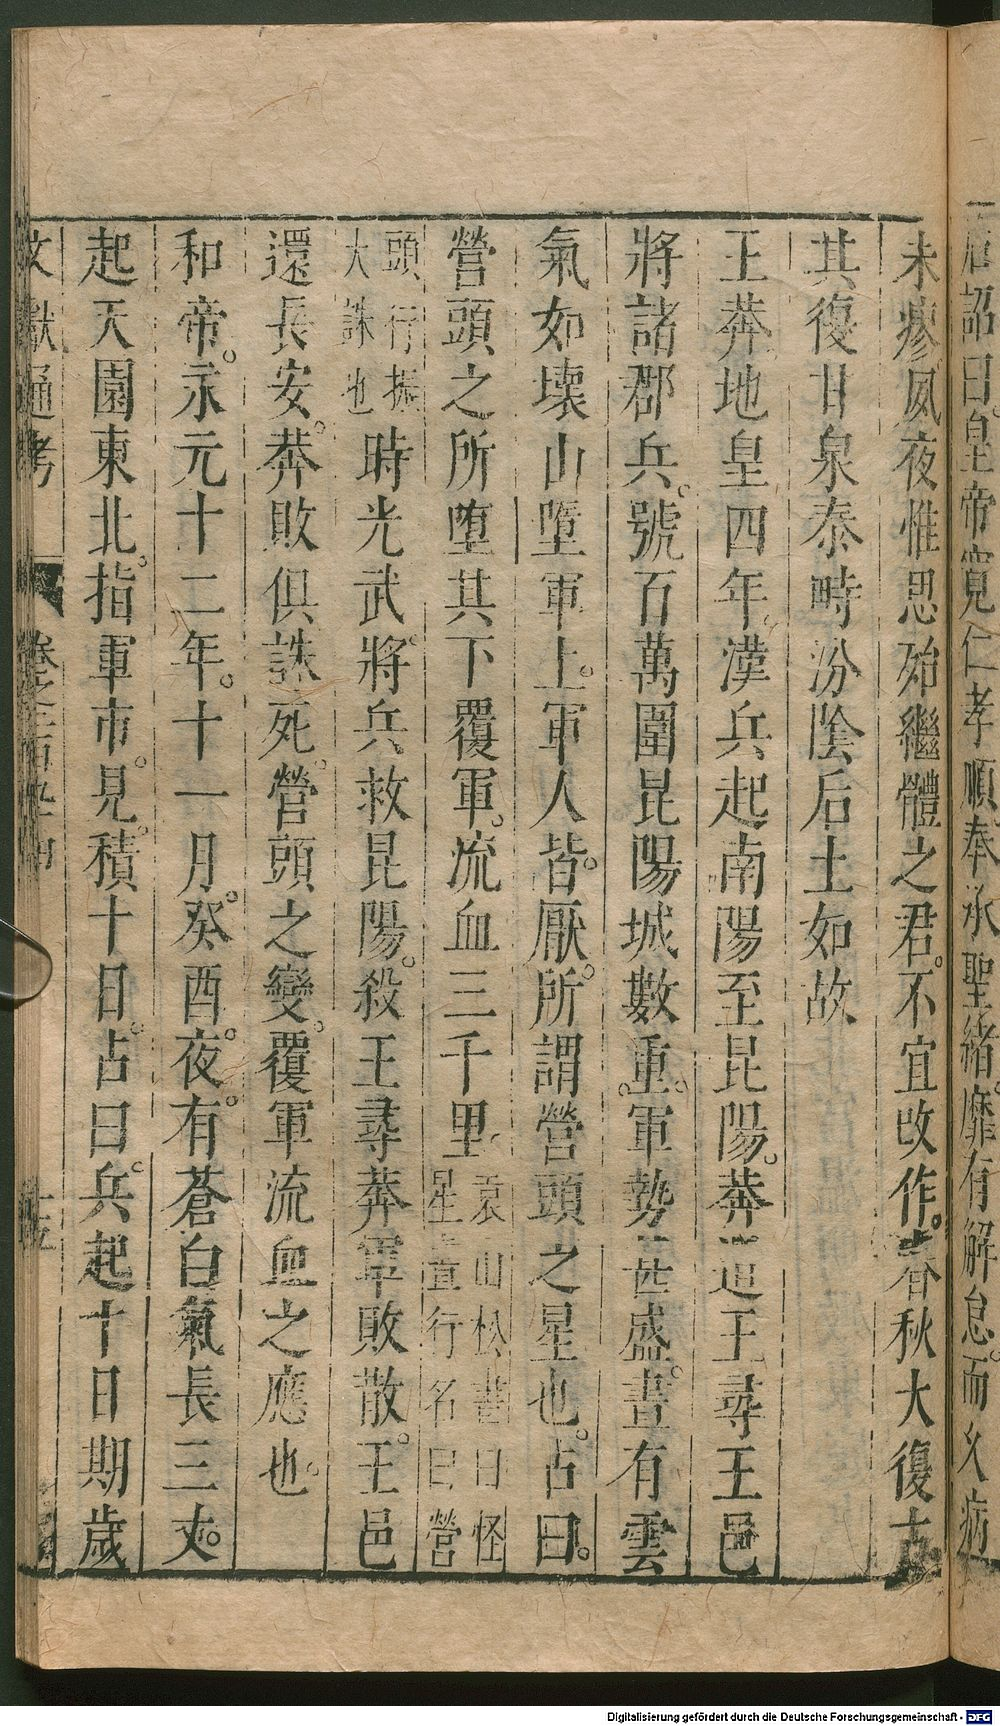 后詔曰皇帝寬仁孝順奉承聖緒。靡有解怠。而久病
未瘳夙夜惟思殆繼體之君。不宜改作。春秋大復古
其復甘泉泰畤汾陰后土如故
王莽地皇四年漢兵起南陽至昆陽。莽遣王尋王邑
將諸郡兵。號百萬圍昆陽城數重。軍勢甚盛。晝有雲
氣如壞山墮軍上。軍人皆。厭。所謂營頭之星也。占曰。
營頭之所墮其下覆軍。流血三千里。袁山松書曰怪
星晝行名曰營
頭行振
大誅也時光武將兵救昆陽。殺王尋莽軍敗散。王邑
還長安。莽敗俱誅死。營頭之變。覆軍流血之應也。
和帝。永元十二年。十一月。癸酉夜。有。蒼白氣長三丈。
起天園東北。指軍市見。積十日。占曰。兵起十日期歲
文獻通考
Digitalisierung gefördert durch die Deutsche Forschungsgemeinschaft - DFG